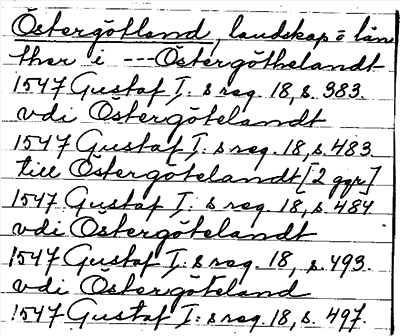 Östergötland, landskap o län
ther i --- Östergöthelandt
1547 Gustaf I:s reg. 18, s. 383.
vdi Östergötelandt
1547 Gustaf I:s reg. 18, s. 483.
till Östergötelandt [2 ggr]
1547 Gustaf I:s reg. 18, s. 484.
vdi Östergötelandt
1547 Gustaf I:s reg. 18, s. 493.
vdi Östergöteland
1547 Gustaf I:s reg. 18, s. 497.